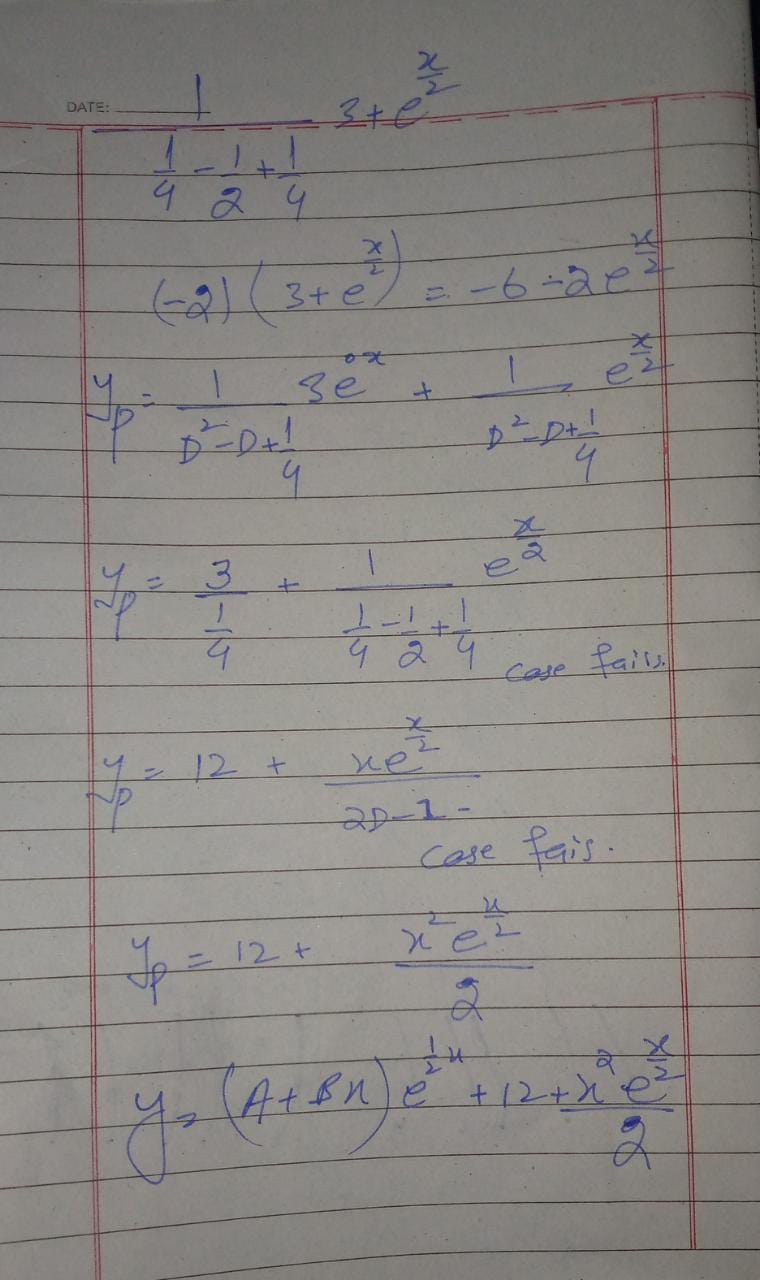 DATE:
1/(1/4 - 1/2 + 1/4) 3+e^(x/2)
(-2)(3+e^(x/2)) = -6-2e^(x/2)
y_p = 1/(D^2-D+1/4) 3e^(0x) + 1/(D^2-D+1/4) e^(x/2)
y_p = 3/(1/4) + 1/(1/4 - 1/2 + 1/4) e^(x/2)
case fais.
y_p = 12 + xe^(x/2)/(2D-1)
case fais.
y_p = 12 + x^2 e^(x/2)/2
y = (A+Bx)e^(1/2 x) + 12 + x^2 e^(x/2)/2